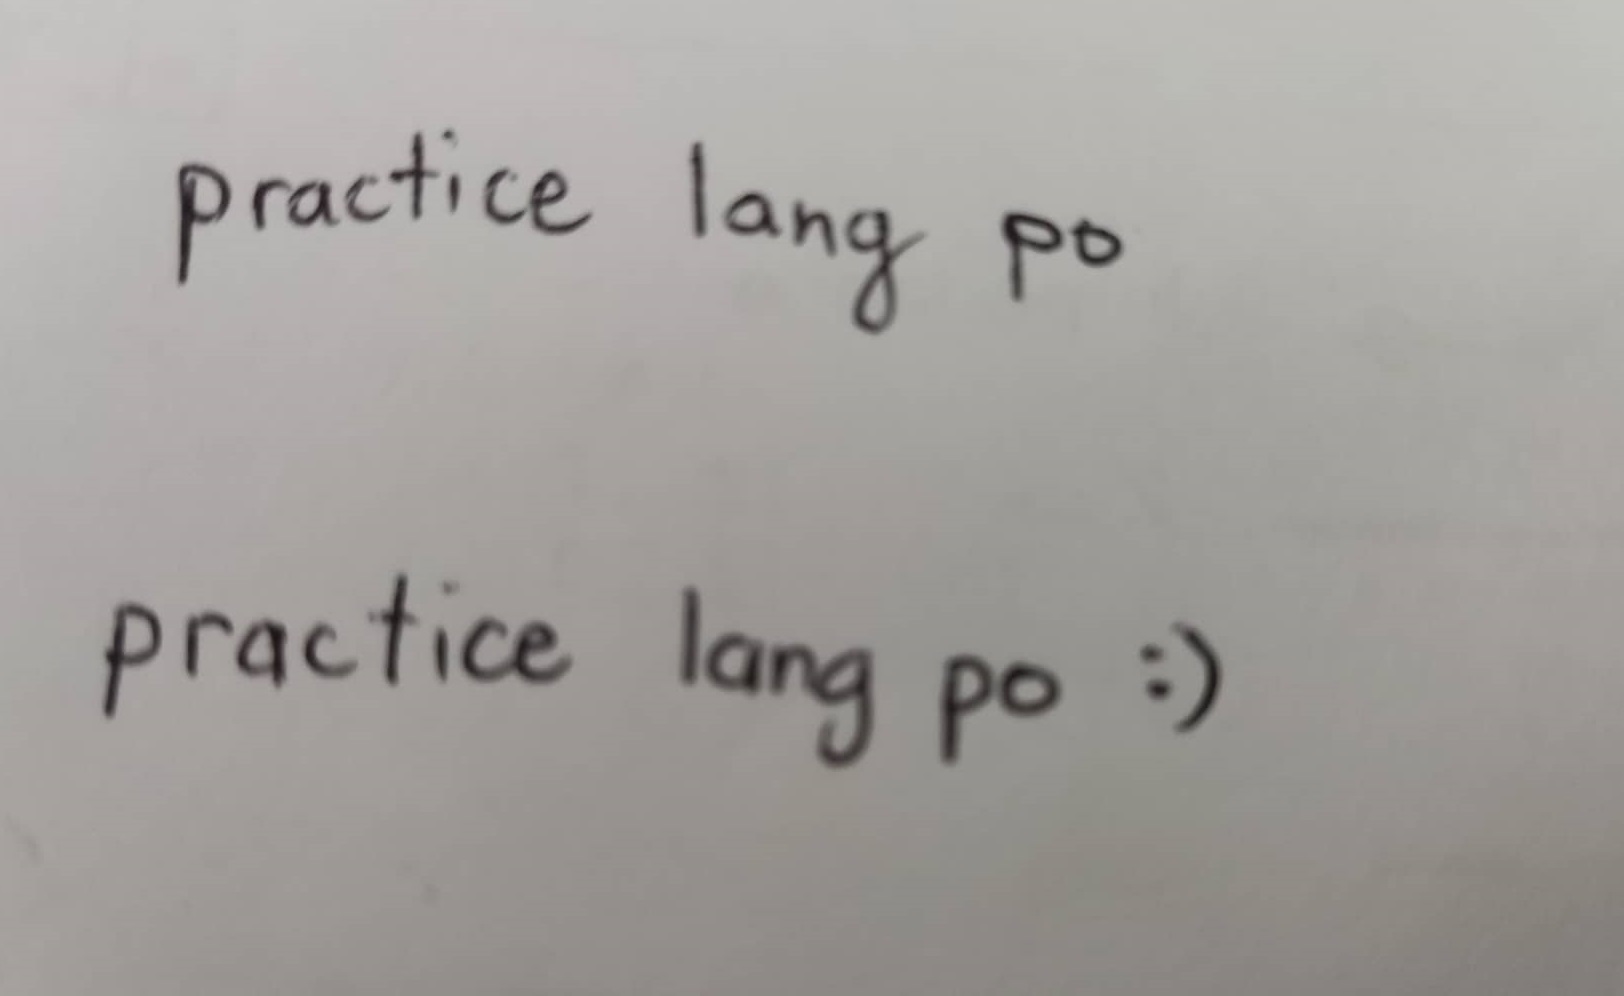 practice lang po
practice lang po :)